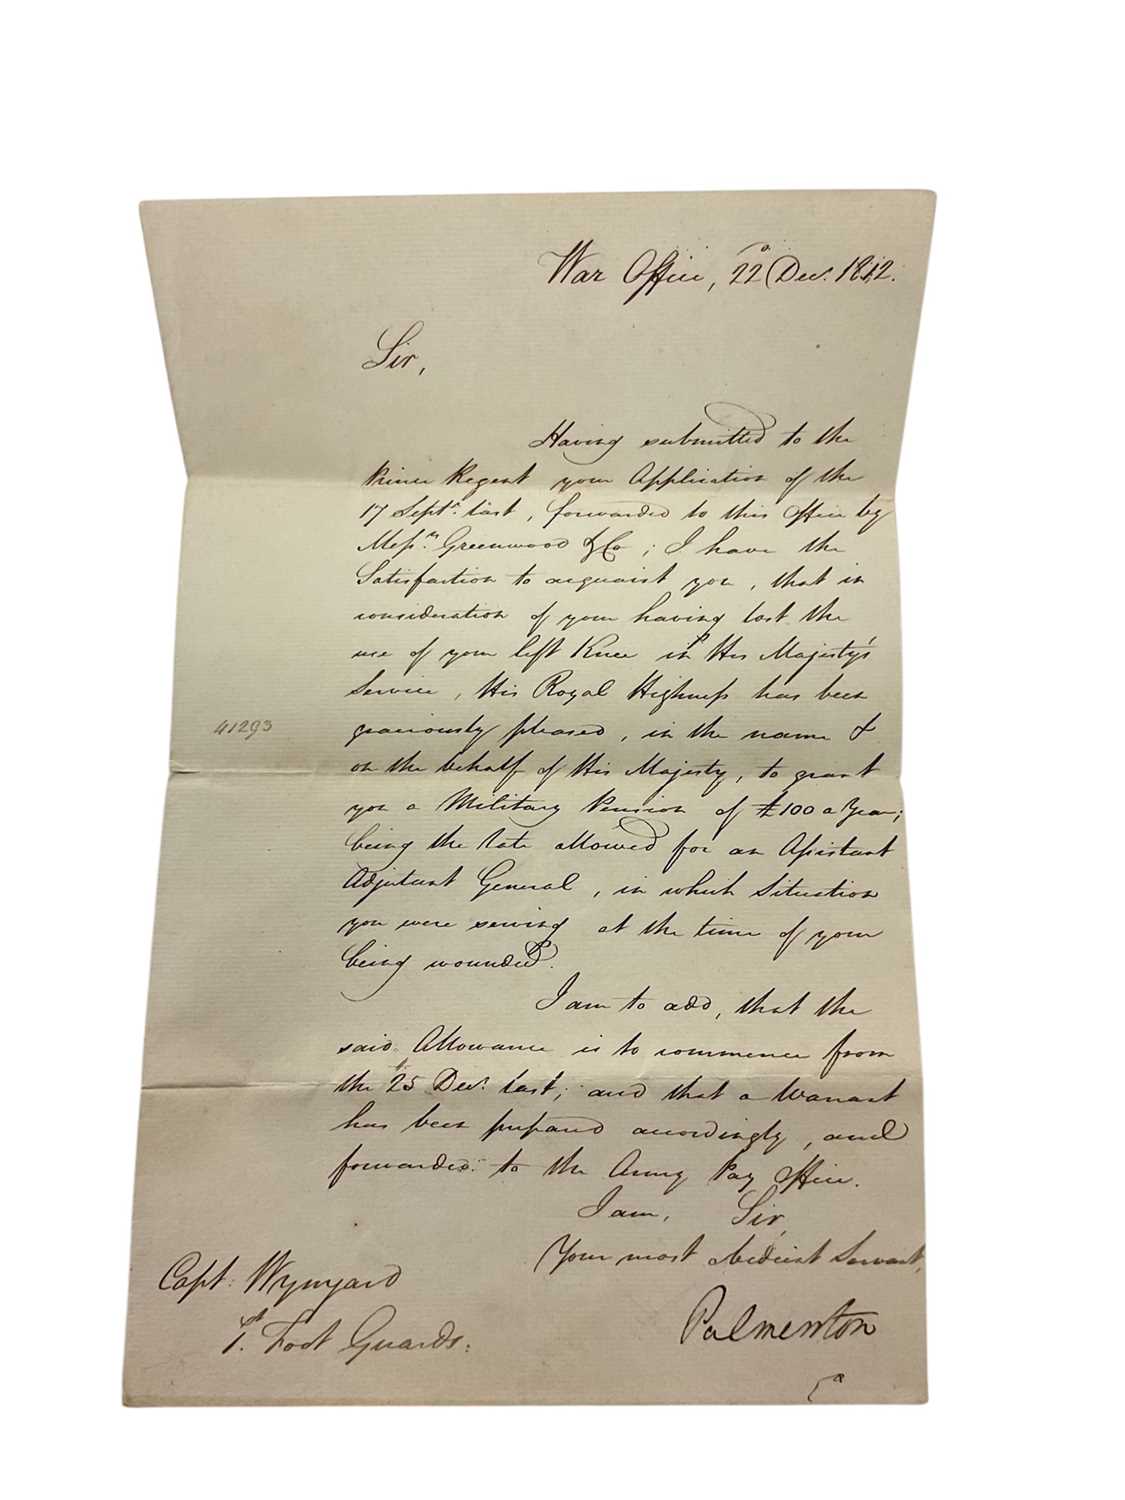 War Office, 22ᵈ Decr. 1812.
Sir,
Having submitted to the
Prince Regent your Application of the
17 Septr. last, forwarded to this Office by
Messrs. Greenwood & Co; I have the
Satisfaction to acquaint you, that in
consideration of your having lost the
use of your left Knee in His Majesty's
Service, His Royal Highness has been
graciously pleased, in the name &
on the behalf of His Majesty, to grant
you a Military Pension of £100 a Year;
being the rate allowed for an Assistant
Adjutant General, in which Situation
you were serving at the time of your
being wounded.
I am to add, that the
said Allowance is to commence from
the 25 Decr. last; and that a Warrant
has been prepared accordingly, and
forwarded to the Army Pay Office.
I am, Sir,
Your most obedient Servant,
Palmerston
Capt. Wynyard
1st. Foot Guards.
41293